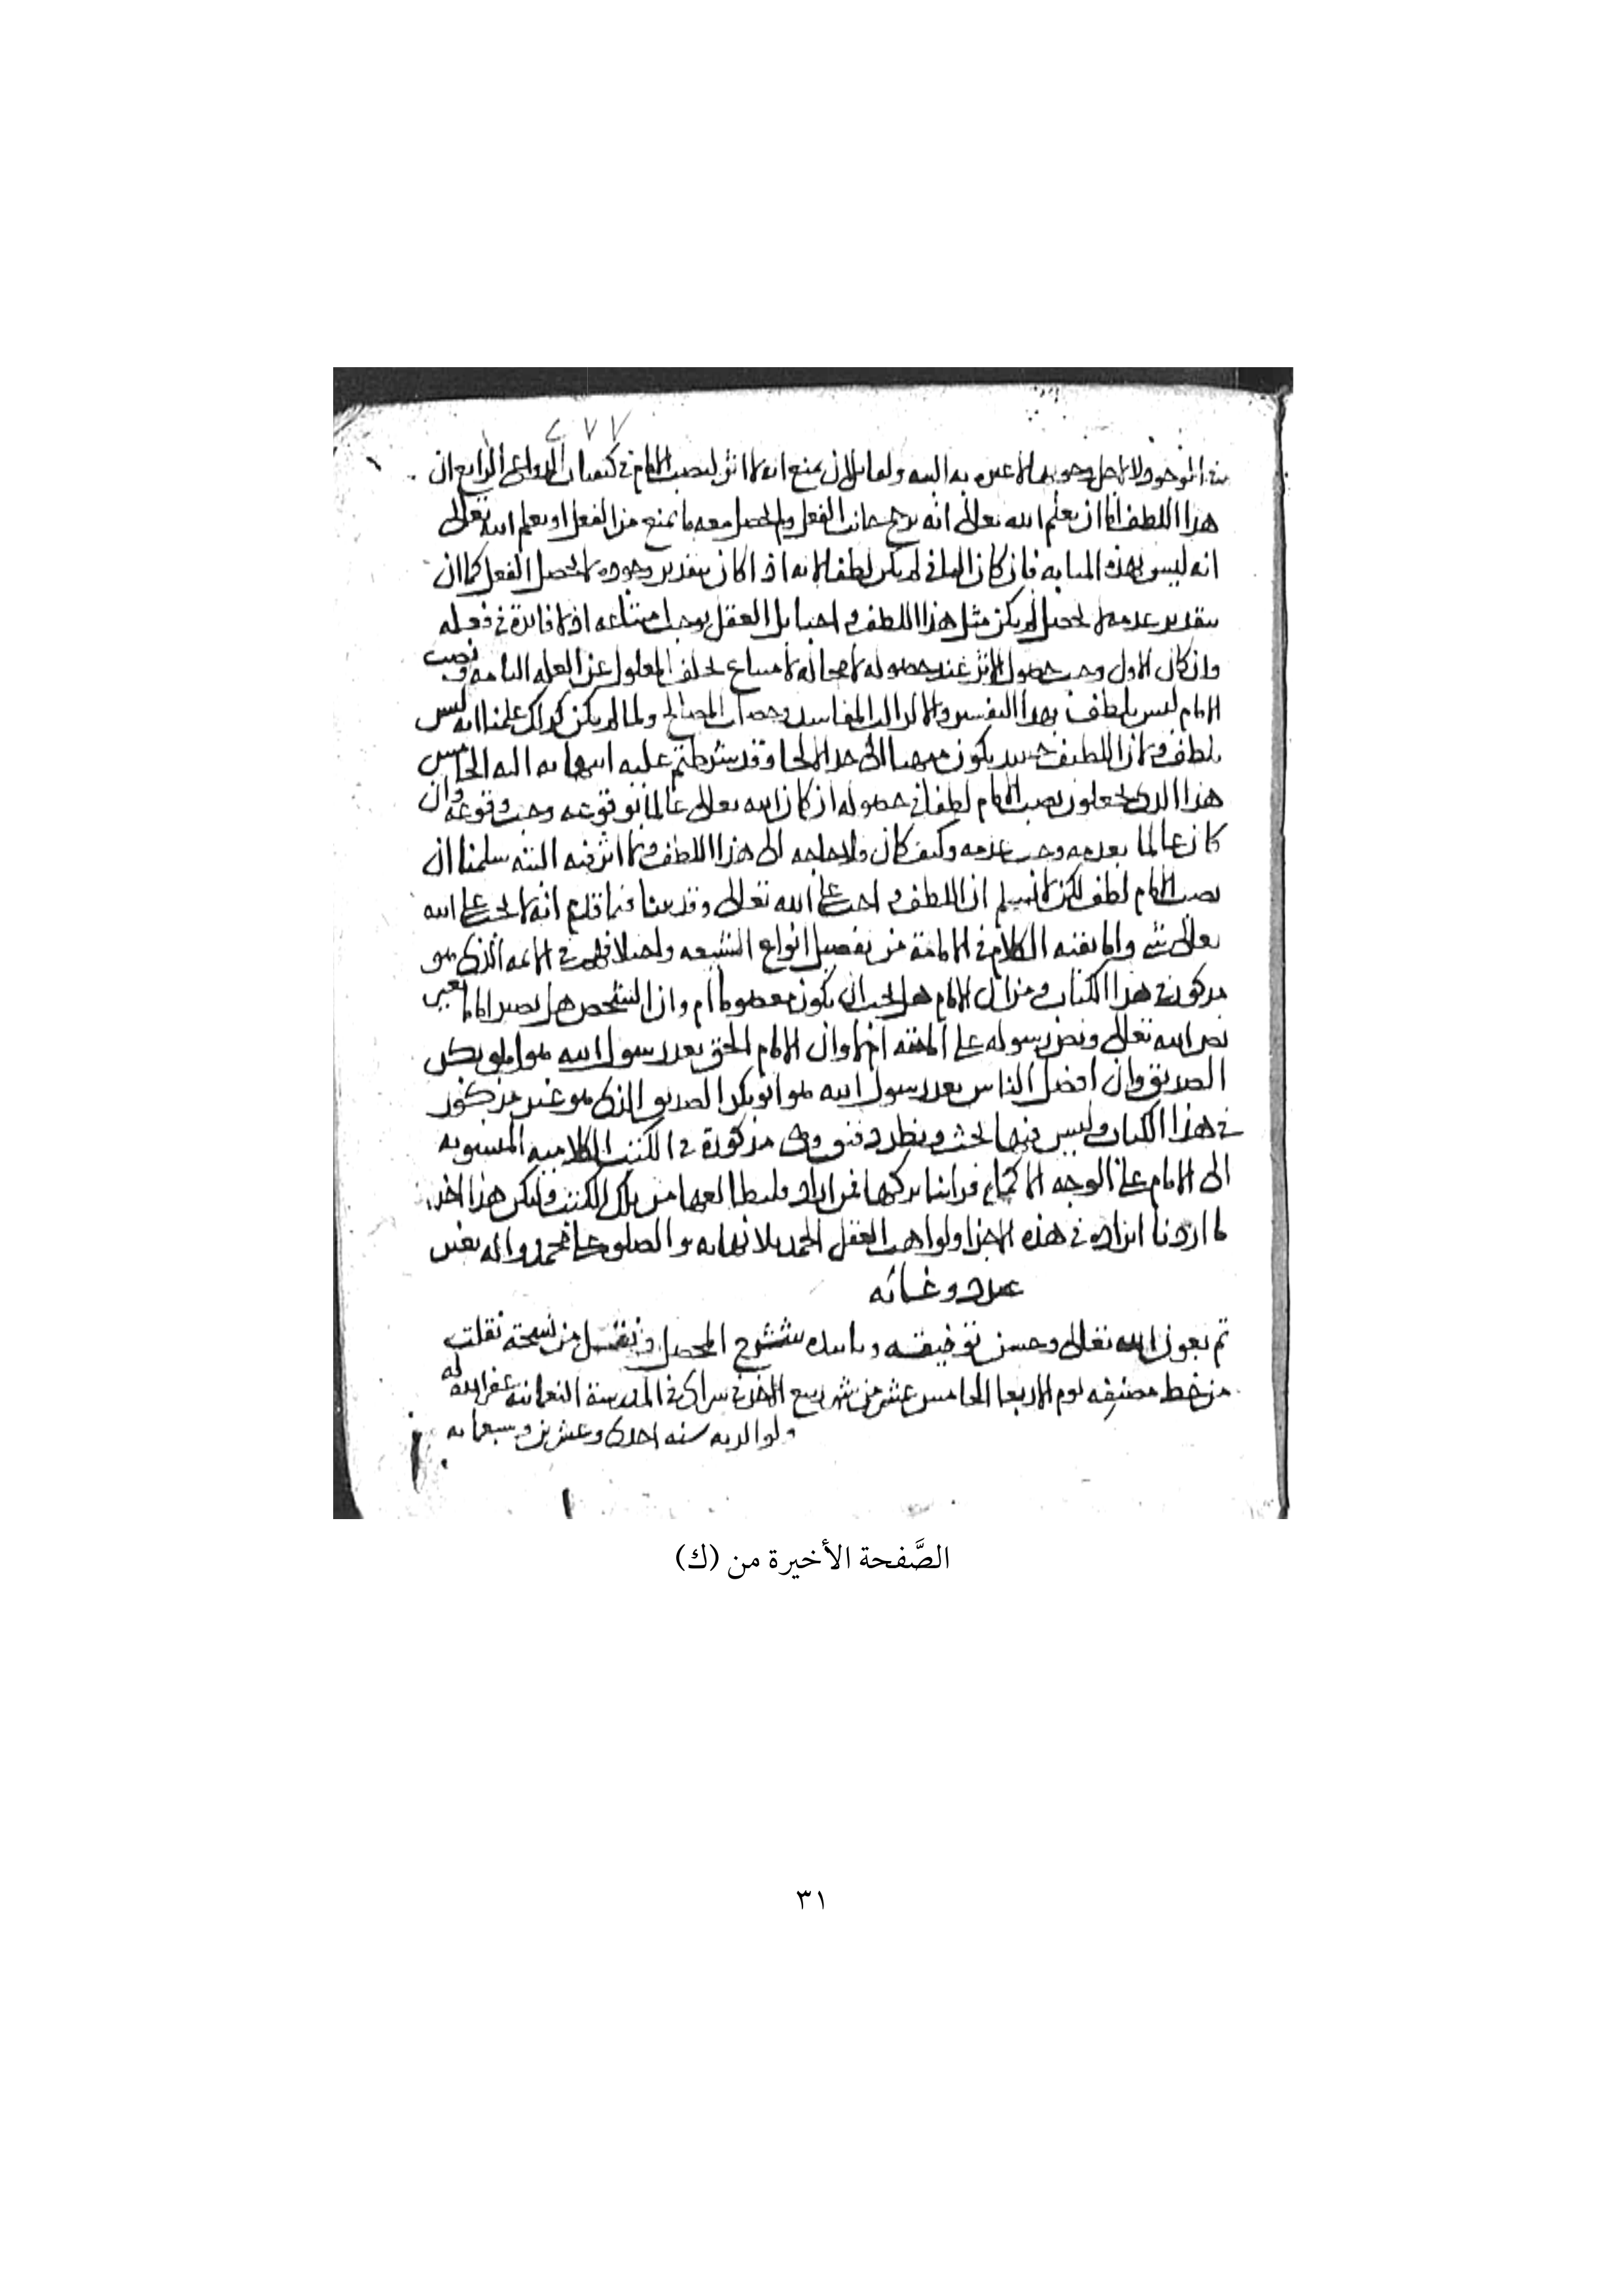 ٢٧٧
هذا اللطف اما ان يعلم الله تعالى انه يرجح جانب الفعل ولم يحصل معه ما يمنع من الفعل او يعلم الله تعالى
انه ليس بهذه المثابة فان كان الثاني لم يكن لطفا لانه اذا كان بتقدير وجوده لا يحصل الفعل كما ان
بتقدير عدمه لا يحصل لم يكن مثل هذا اللطف واجبا بل العقل يوجب امتناعه اذ لا فائدة في فعله
وان كان الاول وجب حصول الاثر عند حصوله لا محالة لامتناع تخلف المعلول عن العلة التامة ونصب
الامام ليس بلطف بهذا التفسير والا لزالت المفاسد وحصلت المصالح ولما لم يكن كذلك علمنا انه ليس
بلطف ولان اللطف حينئذ يكون الى حد الالجاء وقد شرطتم عليه الخامس
هذا الذي تجعلون نصب الامام لطفا في حصوله ان كان الله تعالى عالما بوقوعه وجب وقوعه وان
كان عالما بعدمه وجب عدمه وكيف كان ولا حاجة الى هذا اللطف ولا اثر فيه البتة سلمنا ان
نصب الامام لطف لكن لا نسلم ان اللطف واجب على الله تعالى وقد بينا فيما تقدم انه لا يجب على الله
تعالى شيء واما بقية الكلام في الامامة من تفصيل انواع الشيعة واختلافهم في الائمة الذي هو
مذكور في هذا الكتاب ومن ان الامام هل يجب ان يكون معصوما ام وان الشخص هل يصير اماما بغير
نص الله تعالى ونص رسوله على ام لا وان الامام الحق بعد رسول الله هو ابو بكر
الصديق وان افضل الناس بعد رسول الله هو ابو بكر الصديق الذي هو غير مذكور
في هذا الكتاب وليس فيها بحث ونظر دقيق وهي مذكورة في الكتب الكلامية المنسوبة
الى الامام على الوجه فراينا تركها فمن اراد فليطالعها من تلك الكتب وليكن هذا اخر
ما اردنا ايراده في هذه الاجزا ولواهب العقل الحمد بلا نهاية والصلوة على محمد واله بغير
عدد وغاية
تم بعون الله تعالى وحسن توفيقه وتاييده شرح المحصل من نسخة نقلت
من خط مصنفه يوم الاربعا الخامس عشر من شهر ربيع الاخر في المدرسة النعمانية غفر الله له
ولوالديه سنه احدى وعشرين وسبعمايه
الصَّفحة الأخيرة من (ك)
٣١